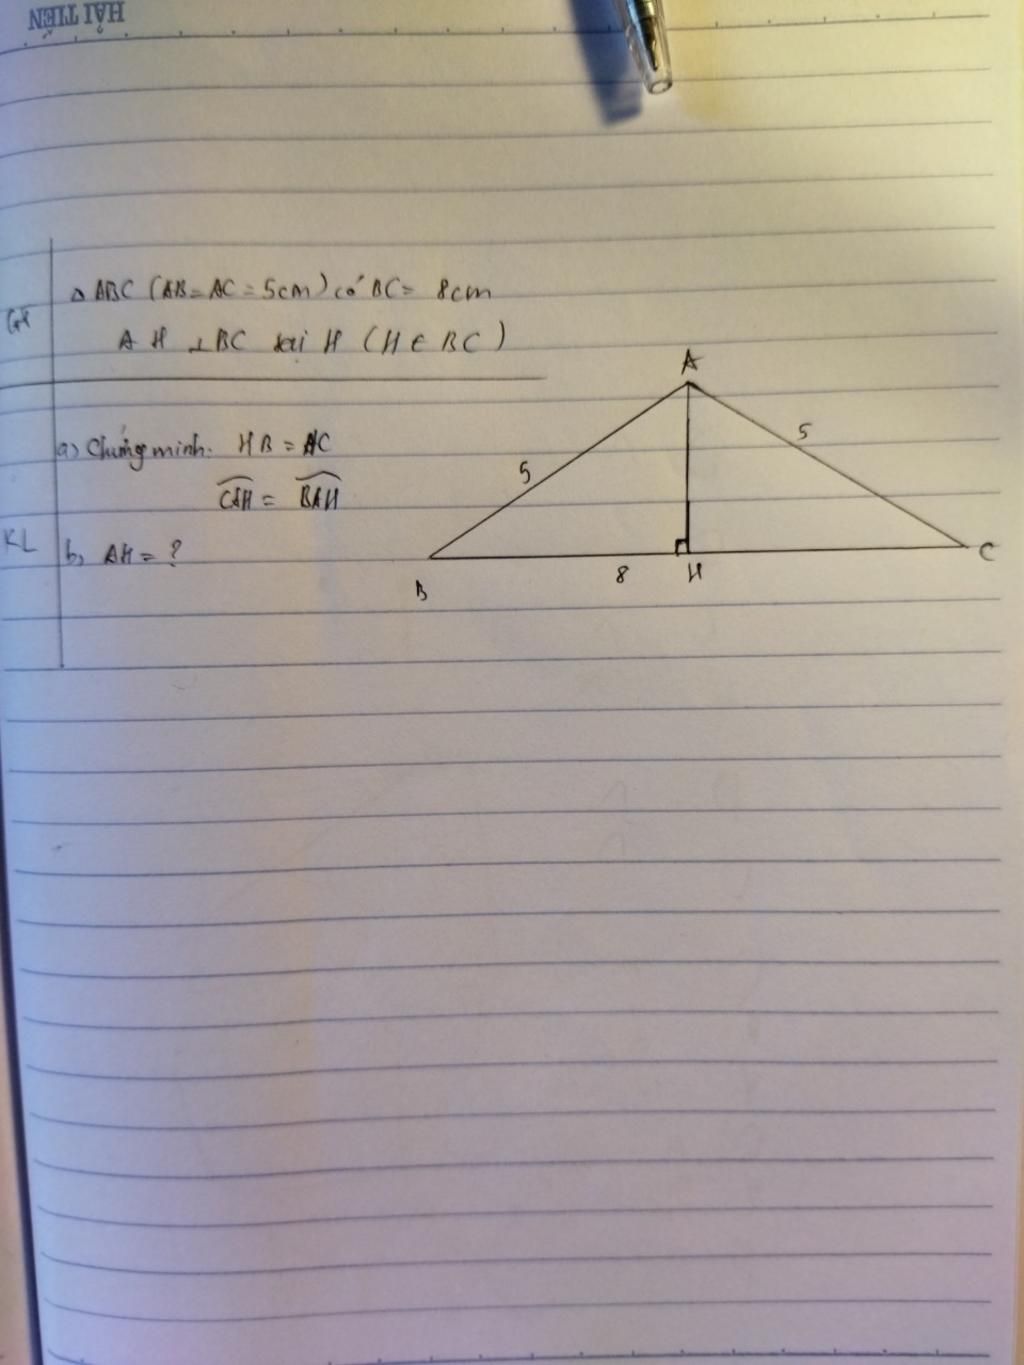 HẢI TIẾN
GT
Δ ABC (AB = AC = 5cm) có BC = 8cm
AH ⊥ BC tại H (H ∈ BC)
a) Chứng minh. HB = HC
CAH = BAH
KL
b, AH = ?
A
5
5
B
8
H
C